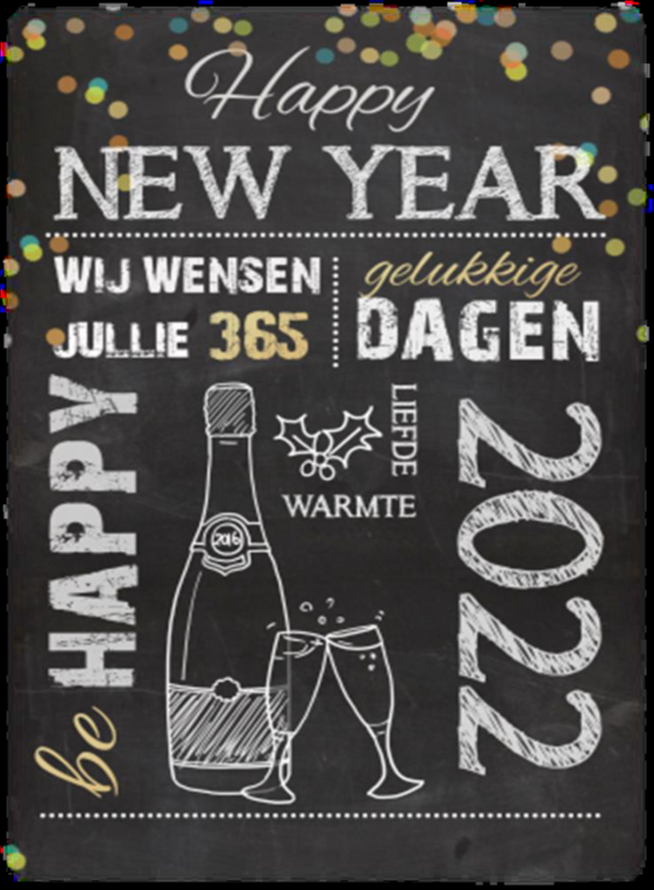 Happy
NEW YEAR
WIJ WENSEN
JULLIE 365
gelukkige
DAGEN
be HAPPY
LIEFDE
WARMTE
2016
2022